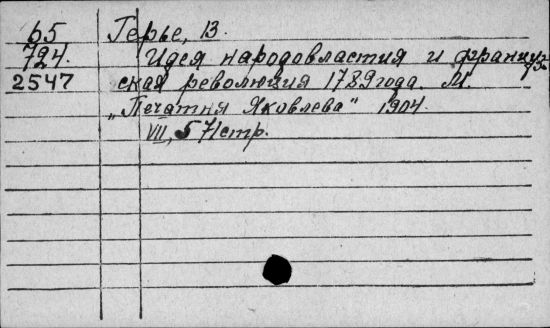 65 Герье, В.
724. Идея народовластия и француз-
2547 ская революция 1789 года. М.
„Печатня Яковлева" 1904.
VII, 571 стр.